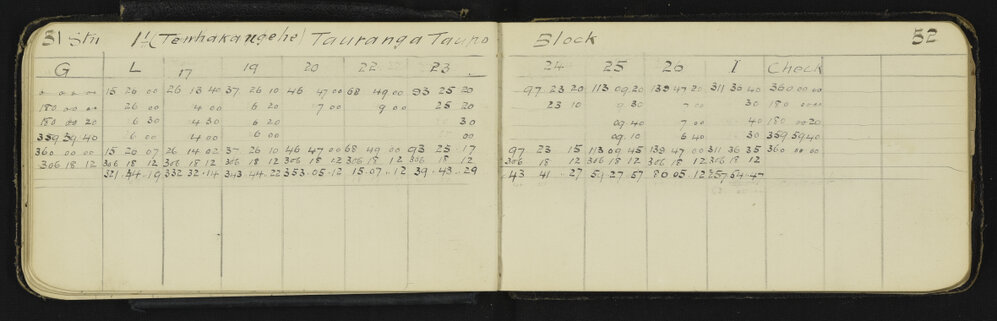 51 Stn 1' (Tewhakaugehe) Tauranga Taupo Block 52
G L 17 19 20 22 23 24 25 26 I Check
0 00 00 15 26 00 26 13 40 37 26 10 46 47 00 68 49 00 93 25 20 97 23 20 113 09 20 139 47 20 311 36 40 360 00 00
180 00 00 26 00 4 00 6 20 7 00 9 00 25 20 23 10 9 30 7 00 30 180 00 00
180 00 20 6 30 4 30 6 20 30 09 40 7 00 40 180 00 20
359 59 40 6 00 4 00 6 00 00 09 10 6 40 30 359 59 40
360 00 00 15 26 07 26 14 02 37 26 10 46 47 00 68 49 00 93 25 17 97 23 15 113 09 45 139 47 00 311 36 35 360 00 00
306 18 12 306 18 12 306 18 12 306 18 12 306 18 12 306 18 12 306 18 12 306 18 12 306 18 12 306 18 12 306 18 12
321.44.19 332 32.14 343.44.22 353.05.12 15.07.12 39.43.29 43 41.27 51.27.57 80 05.12 257.54.47